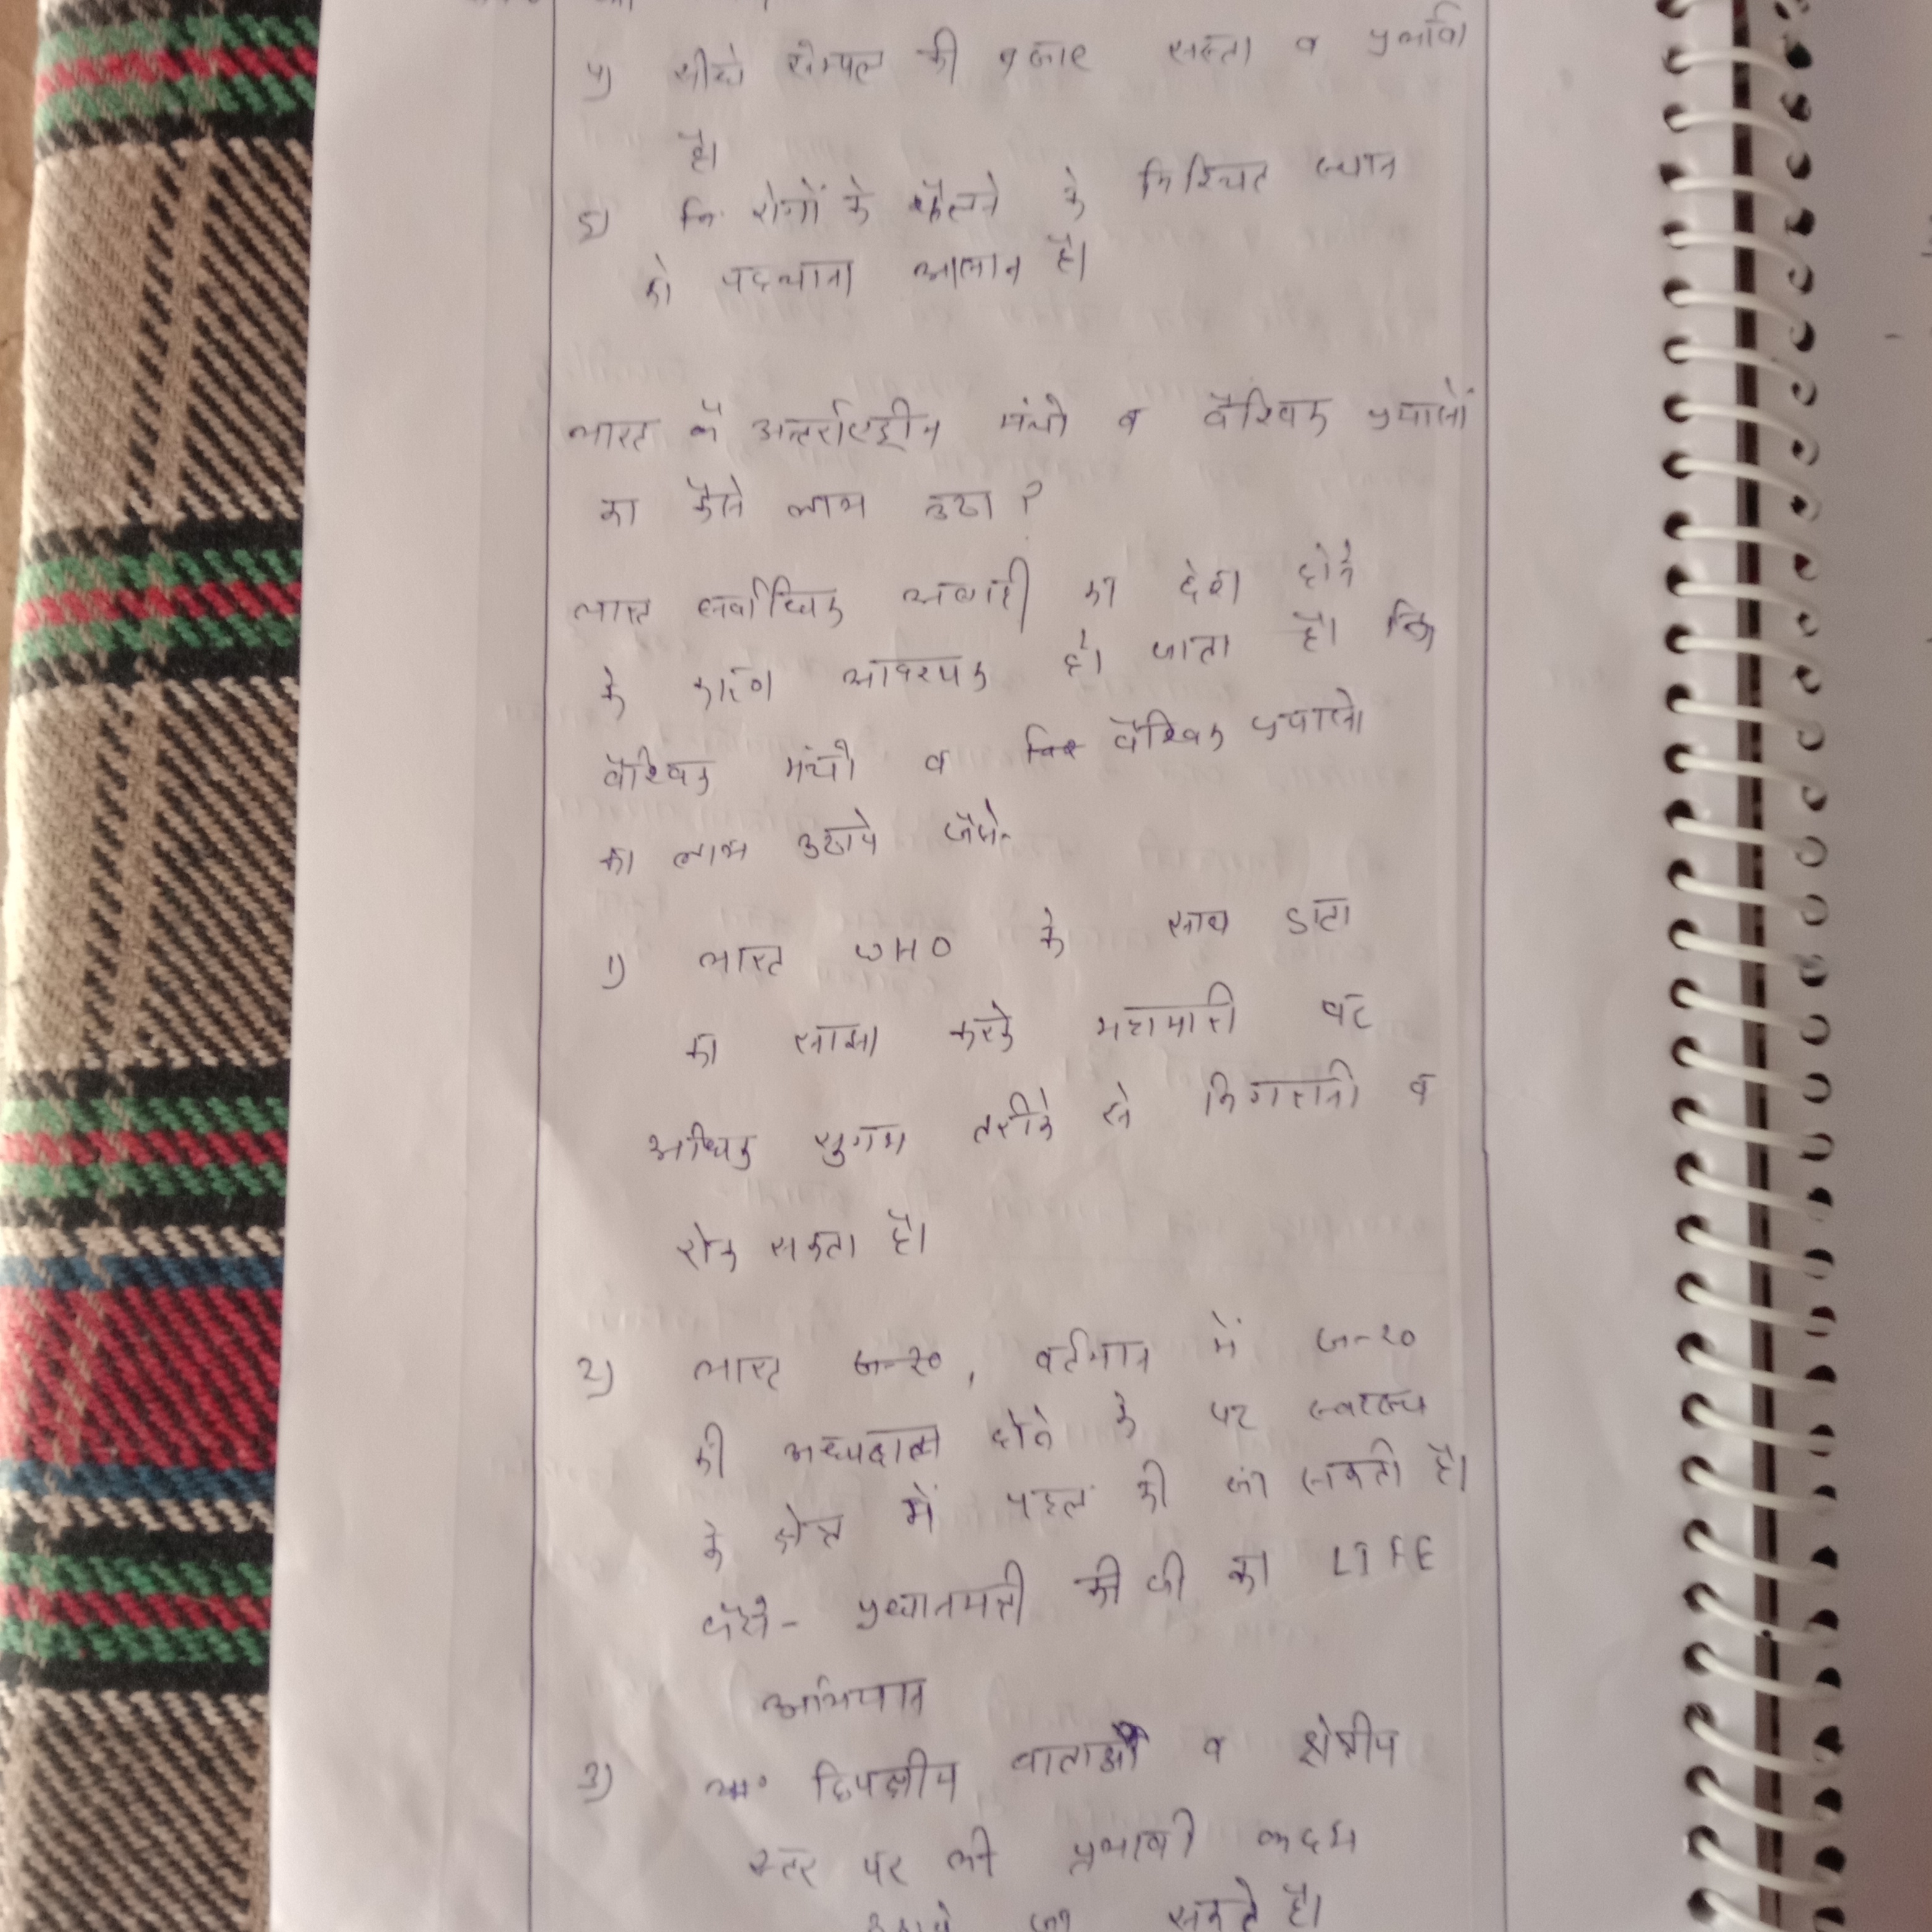 4) सीधे सेम्पल की बजाए सस्ता व प्रभावी
है।
5) रोगों के फैलने के निश्चित स्थान
को पहचाना आसान है।
भारत कैसे अन्तर्राष्ट्रीय मंचो व वैश्विक प्रयासों
का कैसे लाभ उठा?
भारत सर्वाधिक आबादी का देश होने
के कारण आवश्यक हो जाता है। कि
वैश्विक मंचो व वैश्विक प्रयासो
का लाभ उठाये जैसे-
1) भारत WHO के साथ डाटा
को साझा करके महामारी पर
अधिक सुगम तरीके से निगरानी व
रोक सकता है।
2) भारत G-20, वर्तमान में G-20
की अध्यक्षता होने के पर स्वास्थ्य
के क्षेत्र में पहल की जा सकती है।
जैसे- प्रधानमंत्री की जी का LIFE
अभियान
3) द्विपक्षीय वार्ताओं व क्षेत्रीय
स्तर पर भी प्रभावी कदम
उठाये जा सकते है।